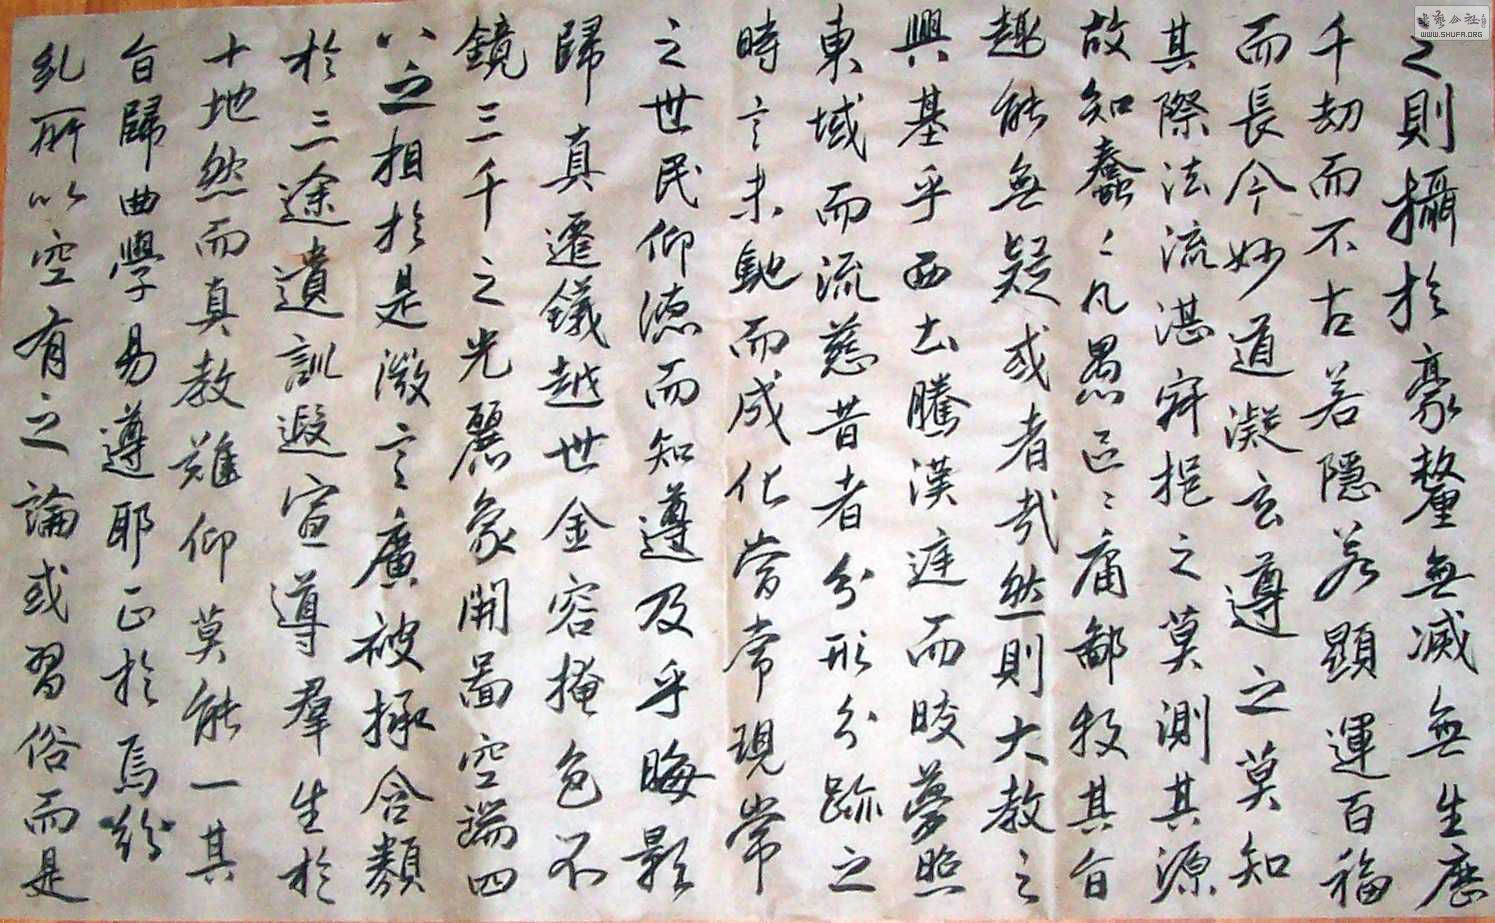 之則攝於豪釐無滅無生歷
千劫而不古若隱若顯運百福
而長今妙道凝玄遵之莫知
其際法流湛寂挹之莫測其源
故知蠢々凡愚區々庸鄙投其旨
趣能無疑或者哉然則大教之
興基乎西土騰漢庭而皎夢照
東域而流慈昔者分形分跡之
時言未馳而成化當常現常
之世民仰德而知遵及乎晦影
歸真遷儀越世金容掩色不
鏡三千之光麗象開圖空端四
八之相於是微言廣被拯含類
於三途遺訓遐宣導羣生於
十地然而真教難仰莫能一其
旨歸曲學易遵耶正於焉紛
糺所以空有之論或習俗而是
WWW.SHUFA.ORG